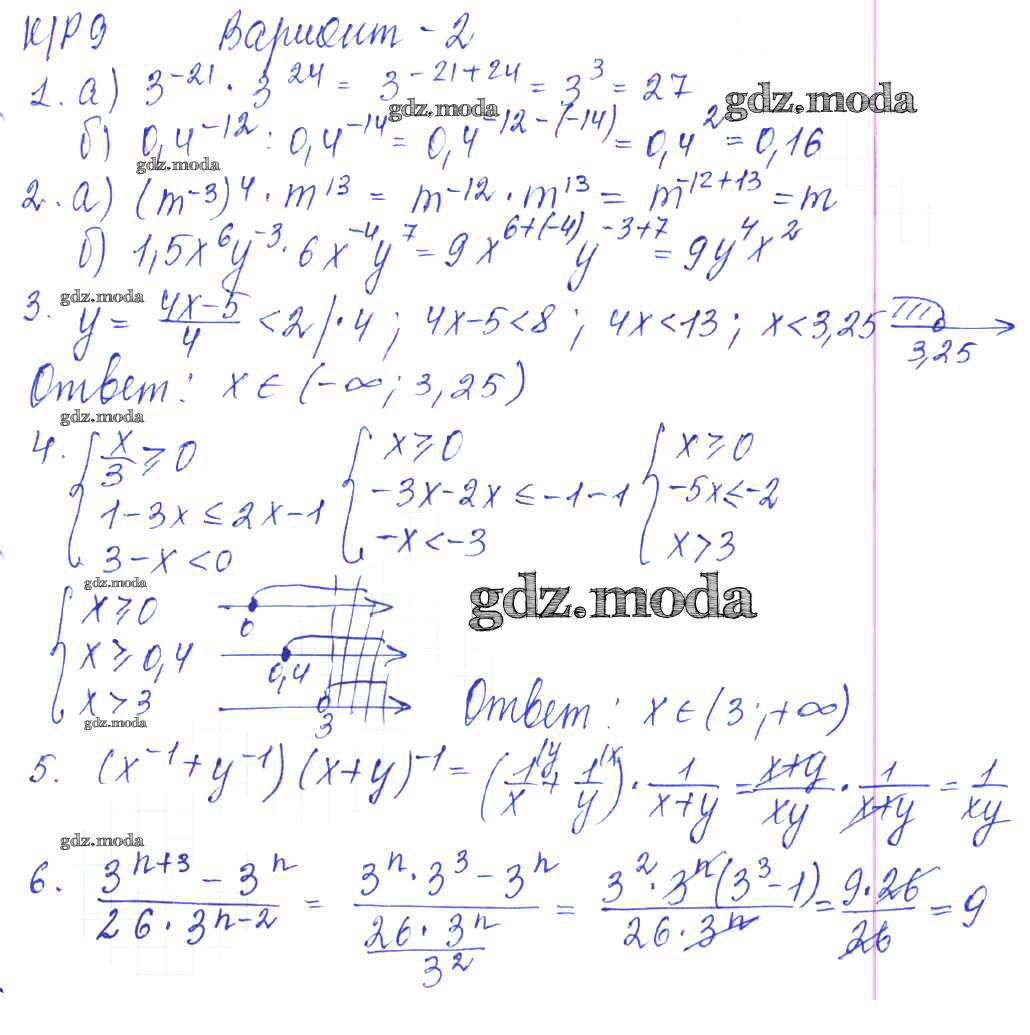 К/Р 9 Вариант - 2
1. а) 3^-21 · 3^24 = 3^-21+24 = 3^3 = 27
gdz.moda gdz.moda
б) 0,4^-12 : 0,4^-14 = 0,4^-12-(-14) = 0,4^2 = 0,16
gdz.moda
2. а) (m^-3)^4 · m^13 = m^-12 · m^13 = m^-12+13 = m
б) 1,5x^6y^-3 · 6x^-4y^7 = 9x^6+(-4)y^-3+7 = 9y^4x^2
gdz.moda
3. y = (4x-5)/4 < 2 | · 4 ; 4x-5<8 ; 4x<13 ; x<3,25
3,25
Ответ: x ∈ (-∞; 3,25)
gdz.moda
4. { x/3 ≥ 0 { x ≥ 0 { x ≥ 0
1-3x ≤ 2x-1 -3x-2x ≤ -1-1 -5x ≤ -2
3-x < 0 -x < -3 x > 3
gdz.moda gdz.moda
{ x ≥ 0 0
x ≥ 0,4 0,4
x > 3 3
gdz.moda
Ответ: x ∈ (3; +∞)
5. (x^-1 + y^-1)(x+y)^-1 = (1/x^(y + 1/y^(x) · 1/(x+y) = (x+y)/(xy) · 1/(x+y) = 1/(xy)
gdz.moda
6. (3^n+3 - 3^n)/(26 · 3^n-2) = (3^n · 3^3 - 3^n)/((26 · 3^n)/3^2) = (3^2 · 3^n(3^3-1))/(26 · 3^n) = (9 · 26)/26 = 9